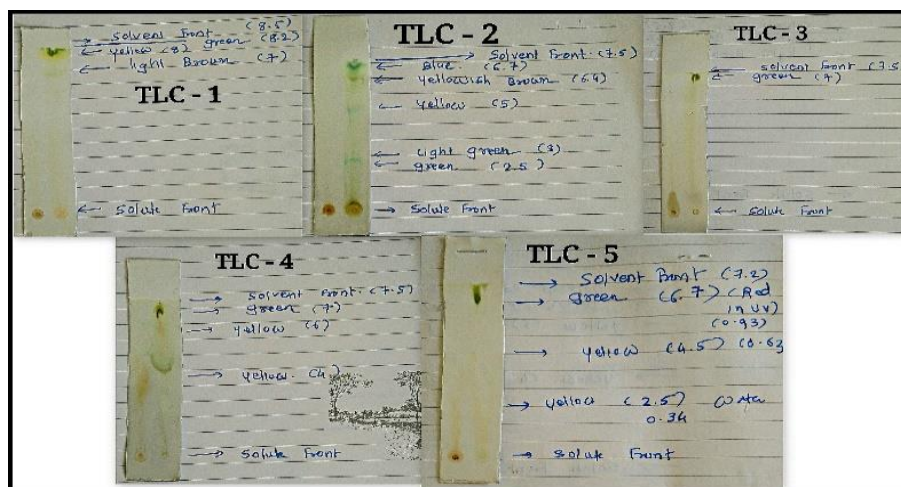 TLC - 1
solvent Front (8.5)
yellow (8) green (8.2)
light Brown (7)
solute Front
TLC - 2
Solvent Front (7.5)
Blue (6.7)
yellowish Brown (6.4)
yellow (5)
light green (3)
green (2.5)
Solute Front
TLC - 3
solvent Front (7.5
green (7)
solute Front
TLC - 4
solvent Front (7.5)
green (7)
yellow (6)
yellow (4)
solute Front
TLC - 5
Solvent Front (7.2)
green (6.7) (Red
in UV)
(0.93)
yellow (4.5) (0.63
yellow (2.5)
0.34
solute Front